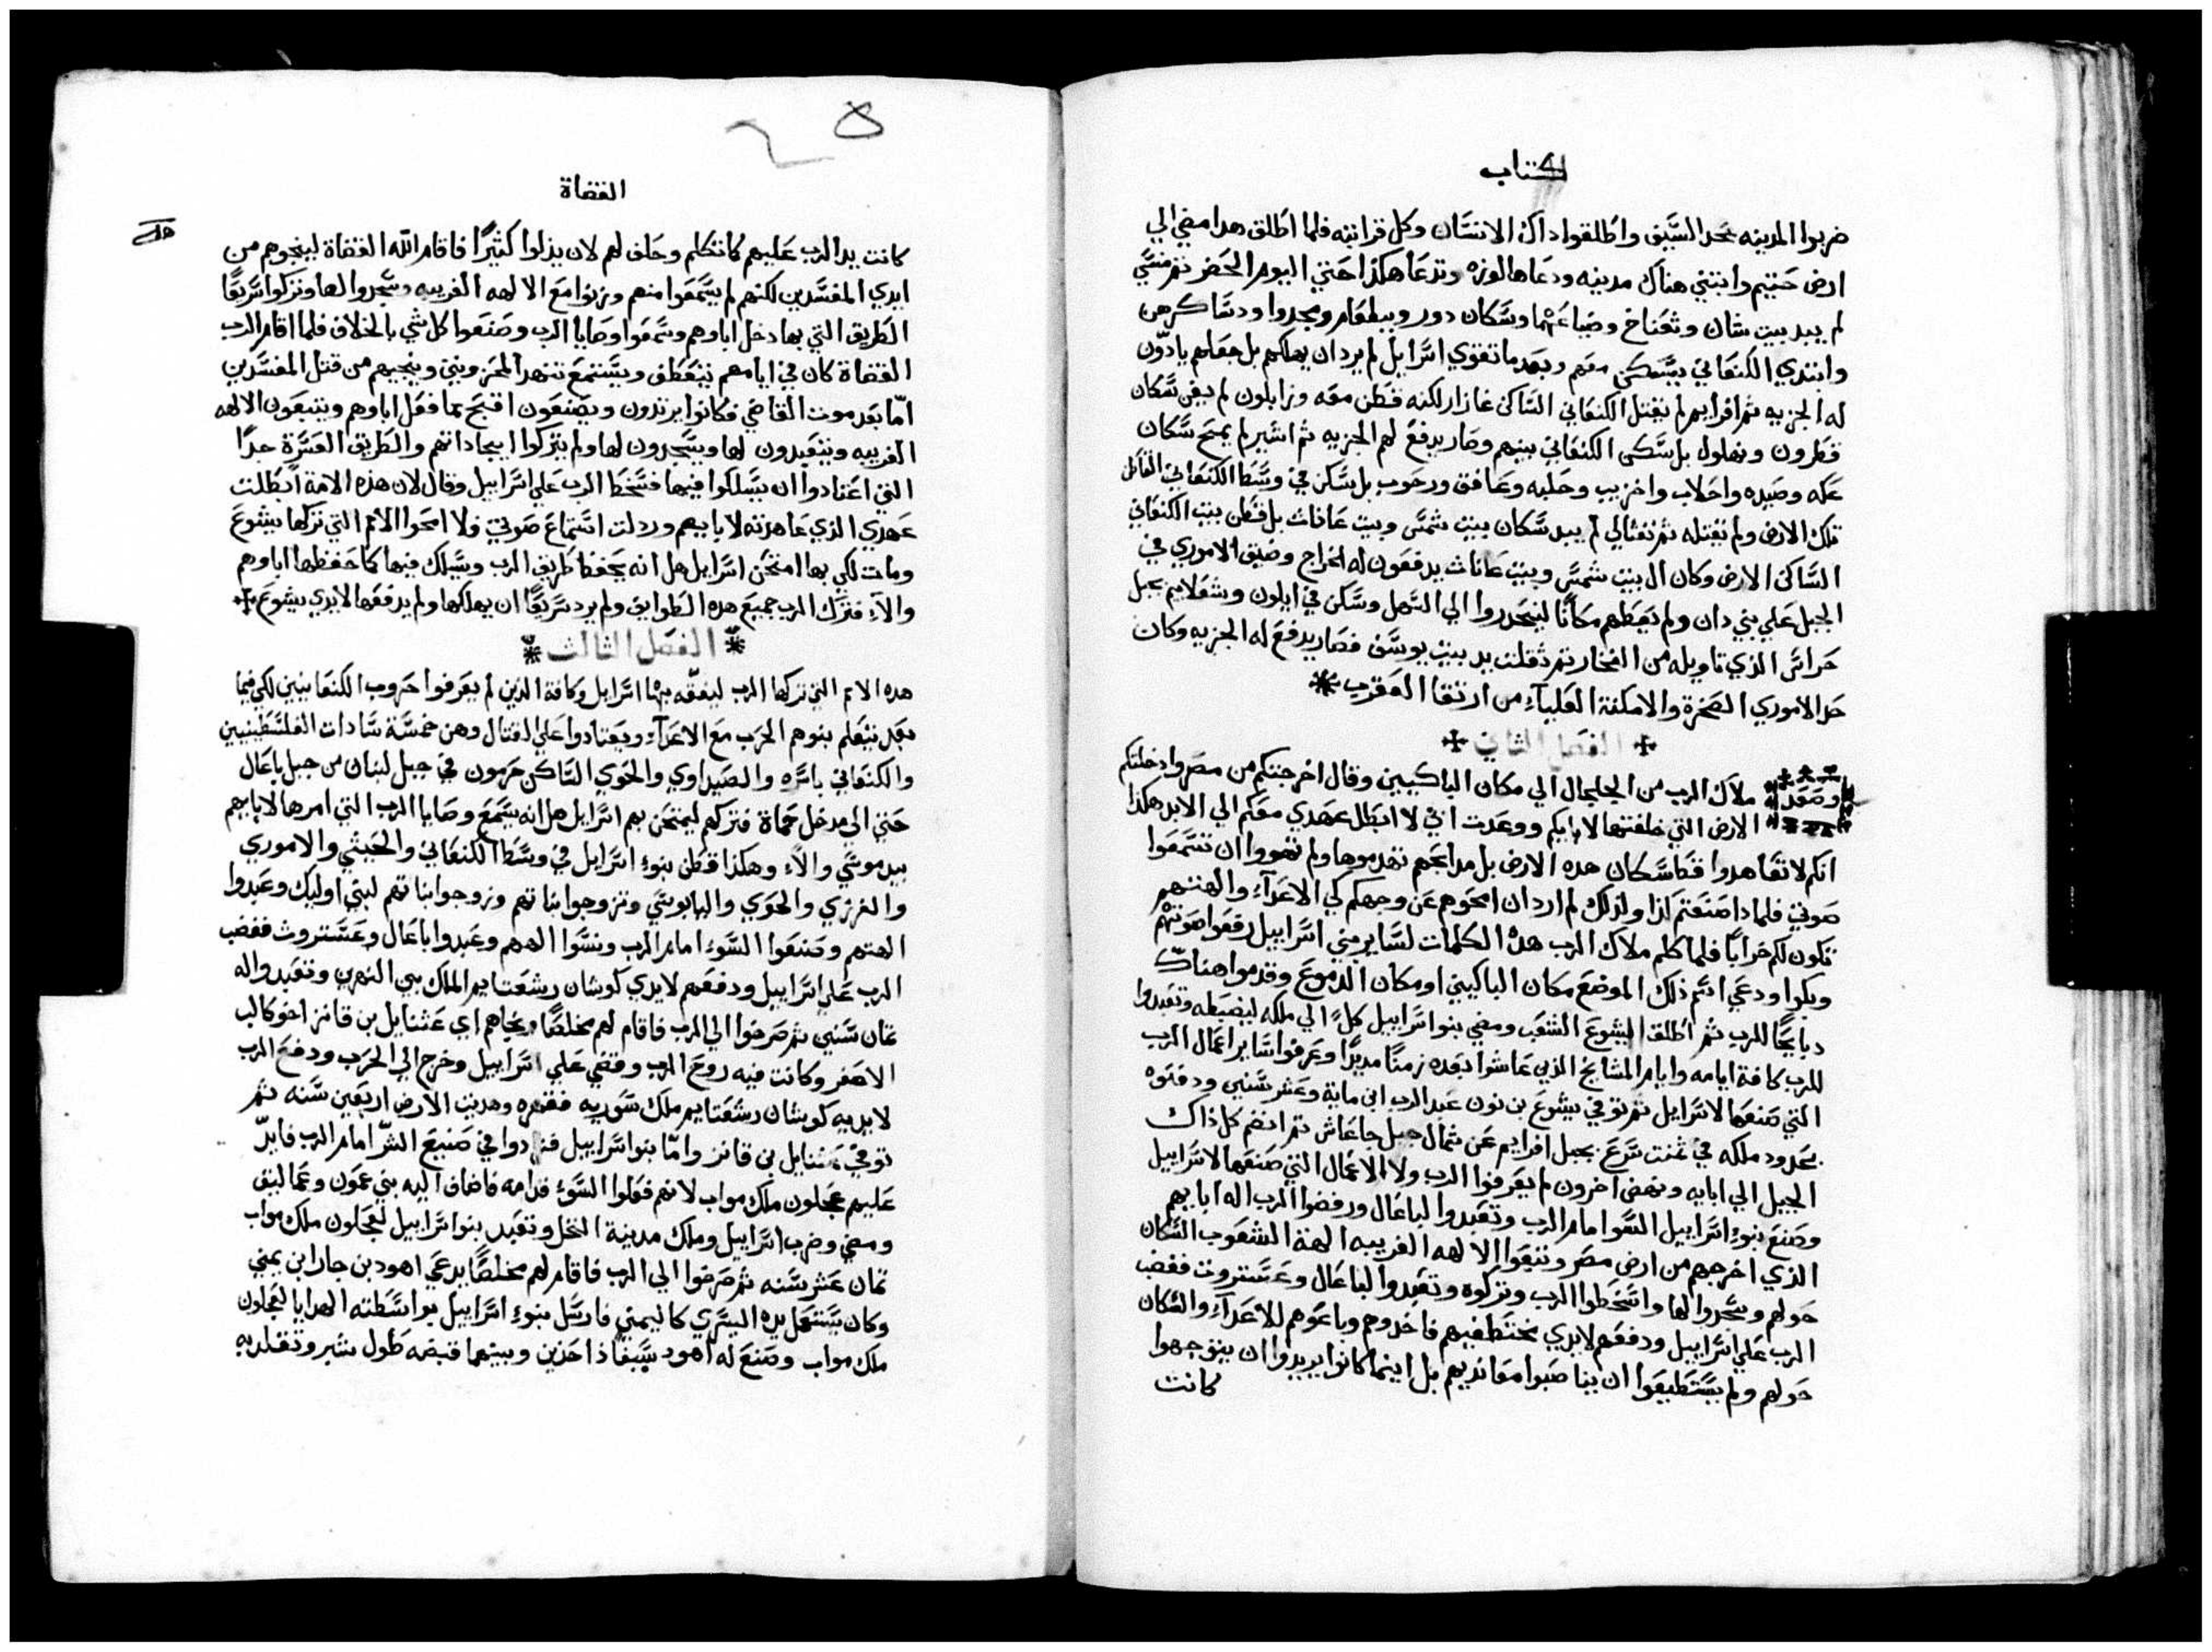 كتاب
ضربوا المدينه بحد السَّيف واطَلقوا داك الانسَّان وكل قرابته فلما اطَلق هدا مضي الي
ارض حَتيم وابتني هناك مدينه ودعَاها لوزه وتدعَا هكذا حَتي اليوم الحَضر ثم منسَّي
لم يبيد بيت شان وثعَناخ وضياعَهما وسَّكان دور ويبلعَام ومجدوا ودسَاكرهن
وابتدي الكنعَاني يسَّكن معَهم وبعَد ما تقوي اسَّرايل لم يرد ان يهلكهم بل جعَلهم يادّون
له الجزيه ثم افرايم لم يقتل الكنعَاني السَّاكن غازار لكنه قطَن معَه وزابلون لم يفن سَّكان
قطرون ونهلول بل سَّكن الكنعَاني بينهم وصَار يدفع لهم الجزيه ثم اشير لم يمح سَّكان
عَكه وصَيده واحَلاب واخزيب وحَلبه وعَافق ورحَوب بل سَّكن في وسَّط الكنعَاني القاطَن
تلك الارض ولم يقتله ثم نفثالي لم يبيد سَّكان بيت شمسَّ وبيت عَاناث بل قطَن بين الكنعَاني
السَّاكن الارض وكان ال بيت شمسَّ وبيت عَاناث يدفعَون له الخراج وضيق الاموري في
الجبل عَلي بني دان ولم يعَطَهم مكانًا لينحَدروا الي السَّهل وسَّكن في ايلون وشعَلابيم بجبل
حَراسَّ الذي تاويله من الفخار ثم ثقلت يد بيت يوسَّف فصَار يدفع له الجزيه وكان
حَد الاموري الصَخرة والامكنة العَلياء من ارتقا العَقرب
الفصَل الثاني
وصَعَد ملاك الرب من الجلجال الي مكان الباكيين وقال اخرجتكم من مصَر وادخلتكم
الارض التي حلفتها لابايكم ووعَدت اني لا ابطَل عَهدي معَكم الي الابد هكذا
انكم لا تعَاهدوا قطَ سَّكان هده الارض بل مدابحَهم تهدموها ولم تهووا ان تسَّمعَوا
صَوتي فلمادا صَنعَتم كذا ولذلك لم ارد ان امحَوهم عَن وجهكم لكي الاعَداء والهتهم
تكون لكم خرابًا فلما كلم ملاك الرب هذه الكلمات لسَّاير بني اسَّراييل رفعَوا صَوتهم
وبكوا ودعَي اسَّم ذلك الموضعَ مكان الباكيني او مكان الدموعَ وقدموا هناك
دبايحًا للرب ثم اطَلق يشوعَ الشعَب ومضي بنو اسَّراييل كلٌ الي ملكه ليضبطَه وتعَبدوا
للرب كافة ايامه وايام المشايخ الذي عَاشوا بعَده زمنًا مديدًا وعَرفوا سَّاير اعمَال الرب
التي صَنعَها لاسَّرايل ثم توفي يشوعَ بن نون عَبد الرب ابن ماية وعَشر سَّنين ودفنوه
بحَدود ملكه في ثمنت سَّرعَ بجبل افرايم عَن شمال جبل جاعَاش ثم انضم كل ذاك
الجيل الي ابايه ونهض اخرون لم يعَرفوا الرب ولا الاعَمال التي صَنعَها لاسَّراييل
وصَنعَ بنو اسَّراييل السَّو امام الرب وتعَبدوا لباعَال ورفضوا الرب اله ابايهم
الذي اخرجهم من ارض مصَر وتبعَوا الالهه الغريبه الهة الشعَوب السَّكان
حَولهم وسَّجدوا لها واسَّخطَوا الرب وتركوه وتعَبدوا لباعَال وعَسَّتروت فغضب
الرب عَلي اسَّراييل ودفعَهم لايدي مختطَفيهم فاخدوهم وباعَوهم للاعَداء والسَّكان
حَولهم ولم يسَّتطَيعَوا ان يناصَبوا معَانديهم بل اينما كانوا يريدوا ان يتوجهوا
كانت
القضاة
كانت يد الرب عَليهم كما تكلم وحَلف لهم لان يذلوا كثيرًا فاقام الله القضاة لينجوهم من
ايدي المفسَّدين لكنهم لم يسَّمعَوا منهم وزنوا معَ الالهه الغريبه وسَّجدوا لها وتركوا سَّريعًا
الطَريق التي بها دخل اباوهم وسَّمعَوا وصَايا الرب وصَنعَوا كل شي بالخلاف فلما اقام الرب
القضاة كان في ايامهم يتعَطَف ويسَّتمعَ تنهد المحَزونين وينجيهم من قتل المفسَّدين
امّا بعَد موت القاضي فكانوا يرتدون ويصَنعَون اقبح مما فعَل اباوهم ويتبعَون الالهه
الغريبه ويتعَبدون لها ويسَّجدون لها ولم يتركوا ايجاداتهم والطَريق العَسَّرة جدًا
التي اعَتادوا ان يسَّلكوا فيها فسَّخطَ الرب عَلي اسَّراييل وقال لان هذه الامة ابطَلت
عَهدي الذي عَاهدته لابايهم وردلت اسَّتماعَ صَوتي ولا امحَوا الامم التي تركها يشوعَ
ومات لكي بها امتحَن اسَّرايل هل انه يحَفظ طَريق الرب ويسَّلك فيها كما حَفظها اباوهم
والاّ فترك الرب جميعَ هذه الطَوايف ولم يرد سَّريعًا ان يهلكها ولم يدفعَها لايدي يشوعَ
الفصَل الثالث
هده الامم التي تركها الرب ليفقّه بهما اسَّرايل وكافة الذين لم يعَرفوا حَروب الكنعَانيين لكي فيما
بعَد يتعَلم بنوهم الحَرب معَ الاعَداء ويعَتادوا عَلي القتال وهن خمسَّة سَّادات الفلسَّطَينيين
والكنعَاني باسَّره والصَيداوي والحَوي السَّاكن حَرمون في جبل لبنان من جبل باعَال
حَتي الي مدخل حَماة فتركهم ليمتحَن بهم اسَّرايل هل انه يسَّمعَ وصَايا الرب التي امرها لابايهم
بيد موسَّي والاّ وهكذا قطَن بنو اسَّرايل في وسَّطَ الكنعَاني والحَيثي والاموري
والفرزي والحَوي واليابوسَّي وتزوجوا بناتهم وزوجوا بناتهم لبني اوليك وعَبدوا
الهتهم وصَنعَوا السَّوء امام الرب ونسَّوا الههم وعَبدوا باعَال وعَسَّتروث فغضب
الرب عَلي اسَّراييل ودفعَهم لايدي كوشان رشعَتايم الملك بين النهرين وتعَبدوا له
ثمان سَّنين ثم صَرخوا الي الرب فاقام لهم مخلصًا ونجاهم اي عَثنايل بن قانز اخو كالب
الاصَغر وكانت فيه روح الرب وقضي عَلي اسَّراييل وخرج الي الحَرب ودفعَ الرب
لايديه كوشان رشعَتايم ملك سَّوريه فقهره وهديت الارض اربعَين سَّنه ثم
توفي عَثنايل بن قانز وامّا بنو اسَّراييل فزادوا في صَنيعَ الشرّ امام الرب فايدّ
عَليهم عَجلون ملك مواب لانهم فعَلوا السَّوء قدامه فاضاف اليه بني عمون وعَماليق
ومضي وضرب اسَّراييل وملك مدينة النخل وتعَبد بنو اسَّراييل لعَجلون ملك مواب
ثمان عَشر سَّنه ثم صَرخوا الي الرب فاقام لهم مخلصًا يدعَي اهود بن جارا بن يميني
وكان يسَّتعَمل يده اليسَّري كاليمني فارسَّل بنو اسَّراييل بواسَّطته الهدايا لعَجلون
ملك مواب وصَنعَ له اهود سَّيفًا ذا حَدين وبينهما قبضه طَول شبر وتقلد به